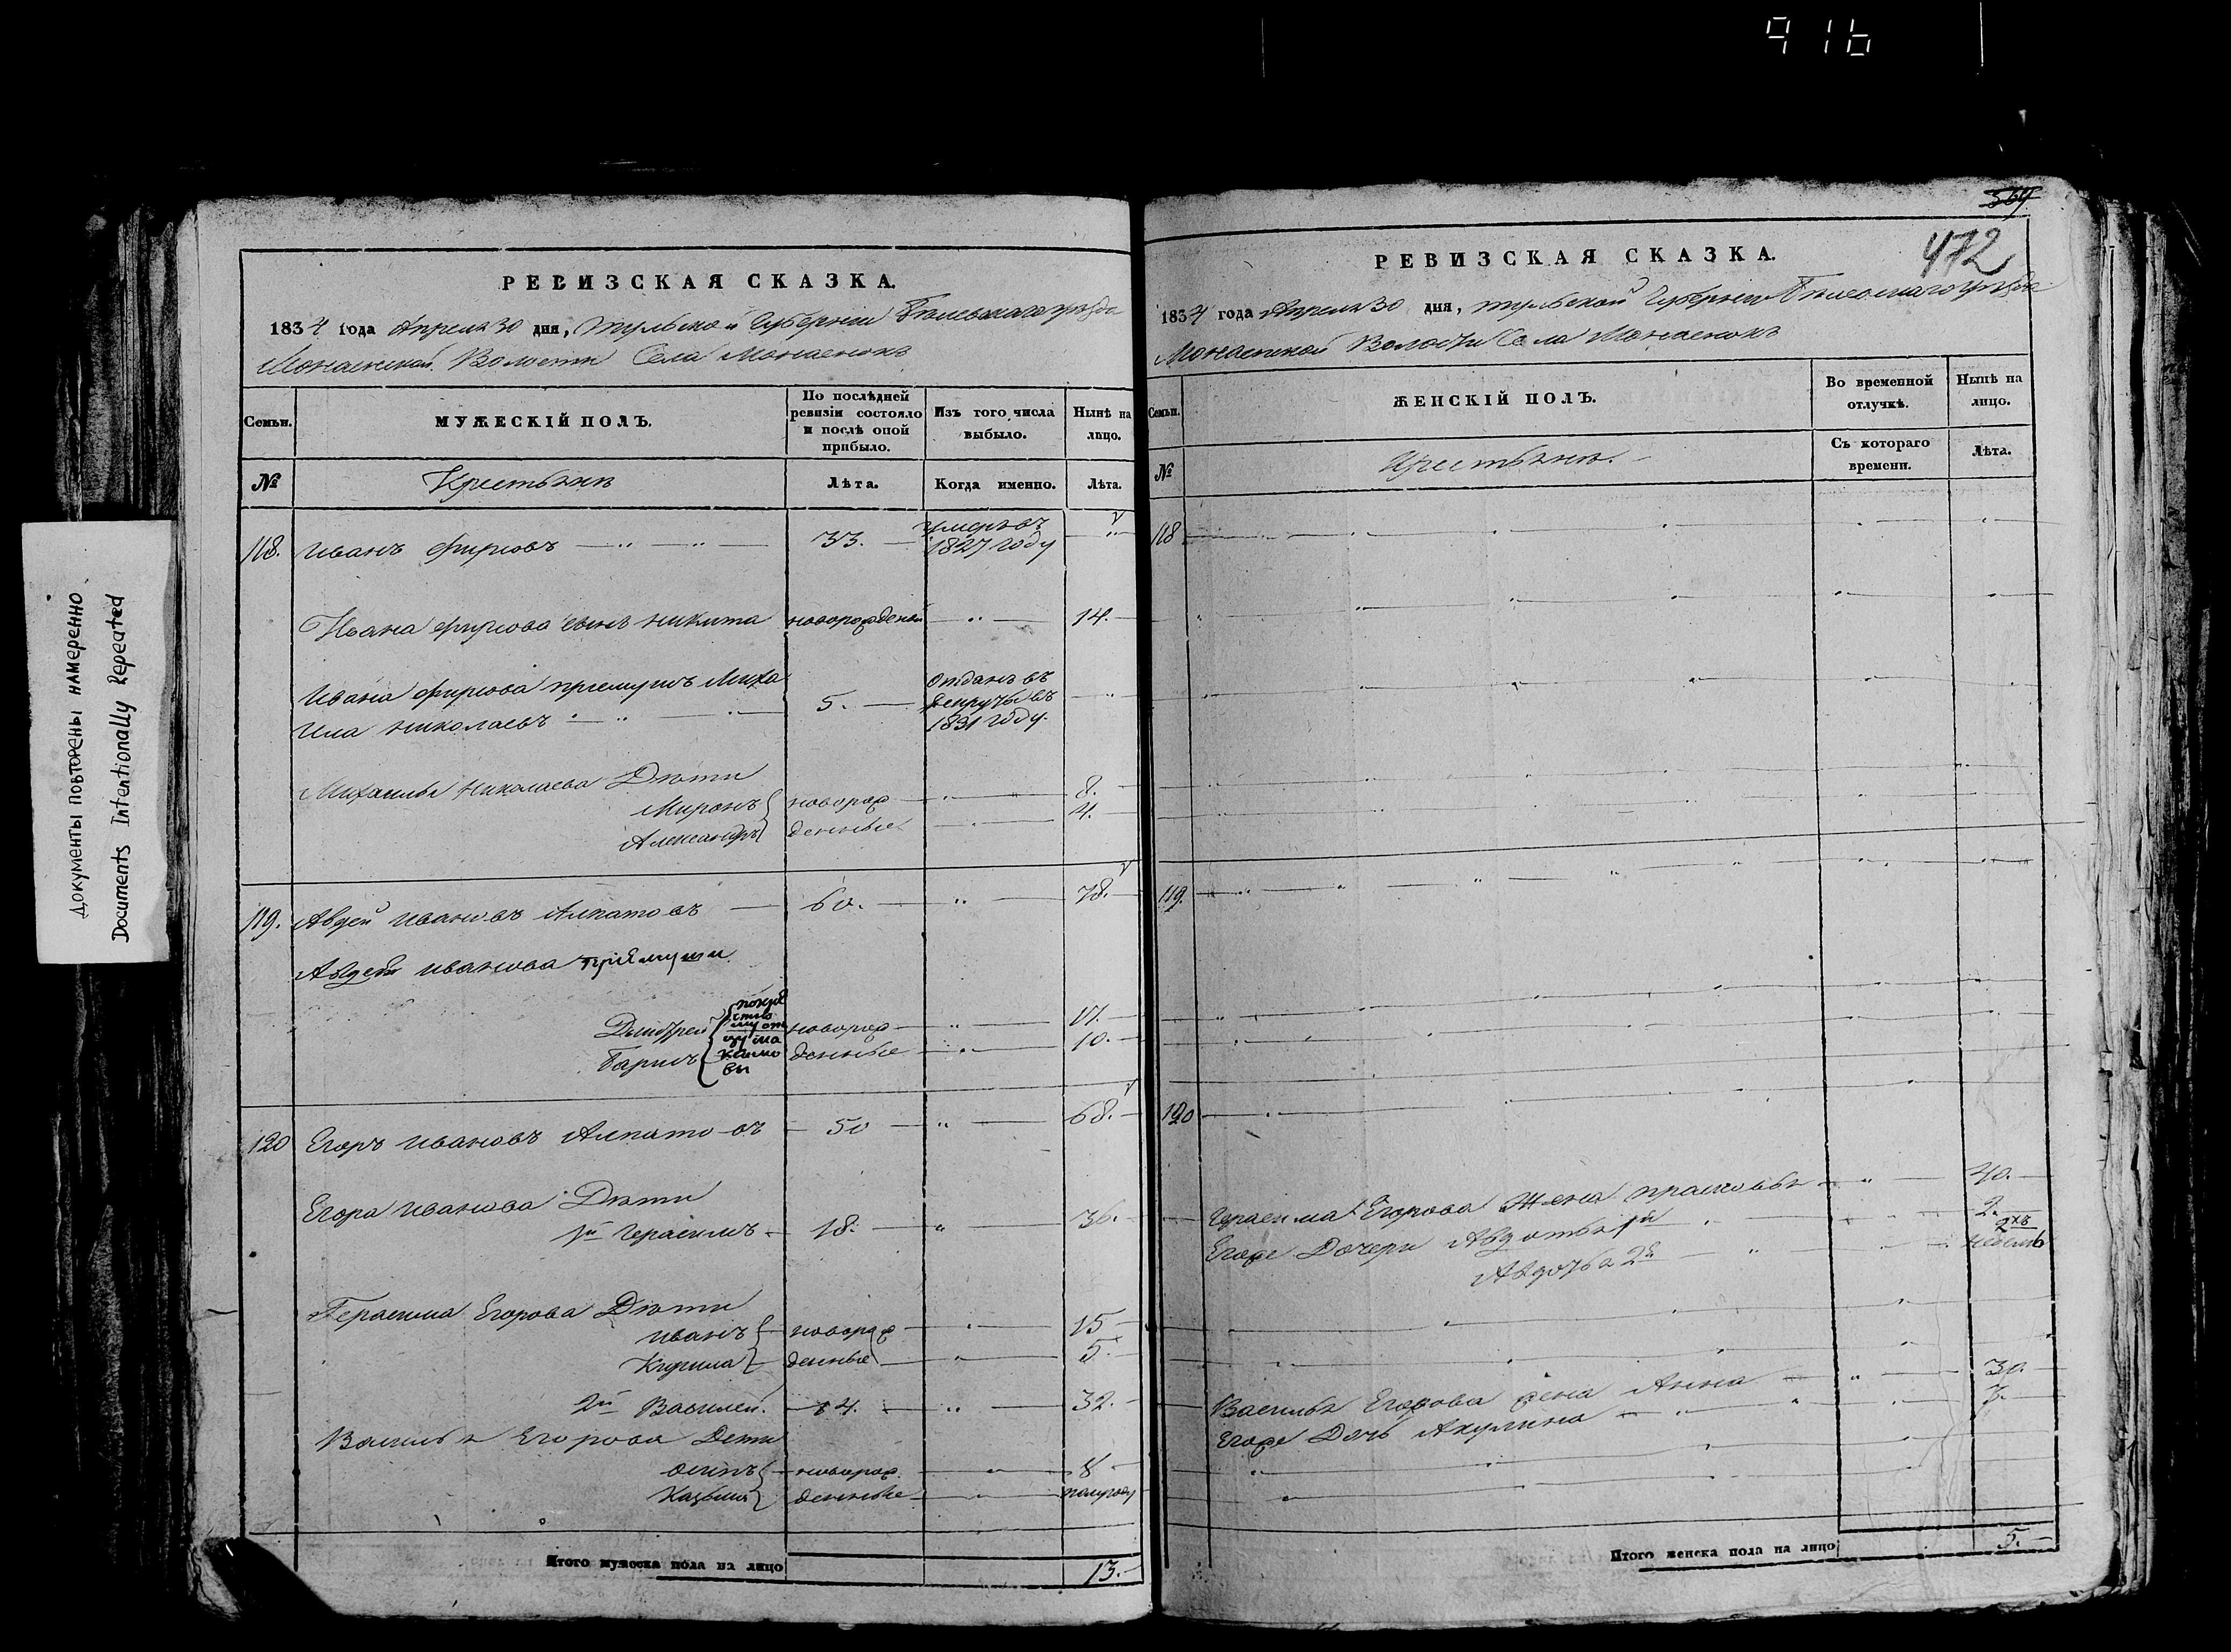 916
Документы повторены намеренно
Documents Intentionally Repeated
РЕВИЗСКАЯ СКАЗКА.
1834 года Апреля 30 дня, Тульской Губернии Белевскаго уезда
Волости Села
Семьи.
МУЖЕСКІЙ ПОЛЪ.
По послѣдней ревизіи состояло и послѣ оной прибыло.
Изъ того числа выбыло.
Нынѣ на лицо.
№
Крестьяне
Лѣта.
Когда именно.
Лѣта.
118. Иванъ Фирсовъ 33. умеръ въ 1827 году
Ивана Фирсова сынъ Никита новорожденой 14.
Ивана Фирсова приемушъ Миха
ила Николаевъ 5. отданъ въ рекруты въ 1831 году.
Михаилы Николаева Дѣти
Миронъ новорож 8.
Александръ денные 4.
119. Авдей Ивановъ Алпатовъ 60. 78.
Авдея Иванова приемуши
Дмитрей новорож 17.
Барисъ денные 10.
120 Егоръ Ивановъ Алпатовъ 50 68.
Егора Иванова Дѣти
1й Герасимъ 18. 36.
Герасима Егорова Дѣти
Иванъ новорож 15
Кирила денные 5.
2й Василей. 14. 32.
Василья Егорова Дети
Осипъ новорож. 8
Казьма денные полугоду
Итого мужеска пола на лицо 13.
569
472
РЕВИЗСКАЯ СКАЗКА.
1834 года Апреля 30 дня, Тульской Губернии Белевскаго уезда
Волости Села
Семьи.
ЖЕНСКІЙ ПОЛЪ.
Во временной отлучкѣ.
Нынѣ на лицо.
№
Крестьяне.
Съ котораго времени.
Лѣта.
118
119.
120
Герасима Егорова Жена Прасковья 40.
Егоже Дочери Авдотья 1я 2.
Авдотья 2я 2хъ недель
Василья Егорова жена Анна 30.
Егоже Дочь Акулина 7.
Итого женска пола на лицо 5.